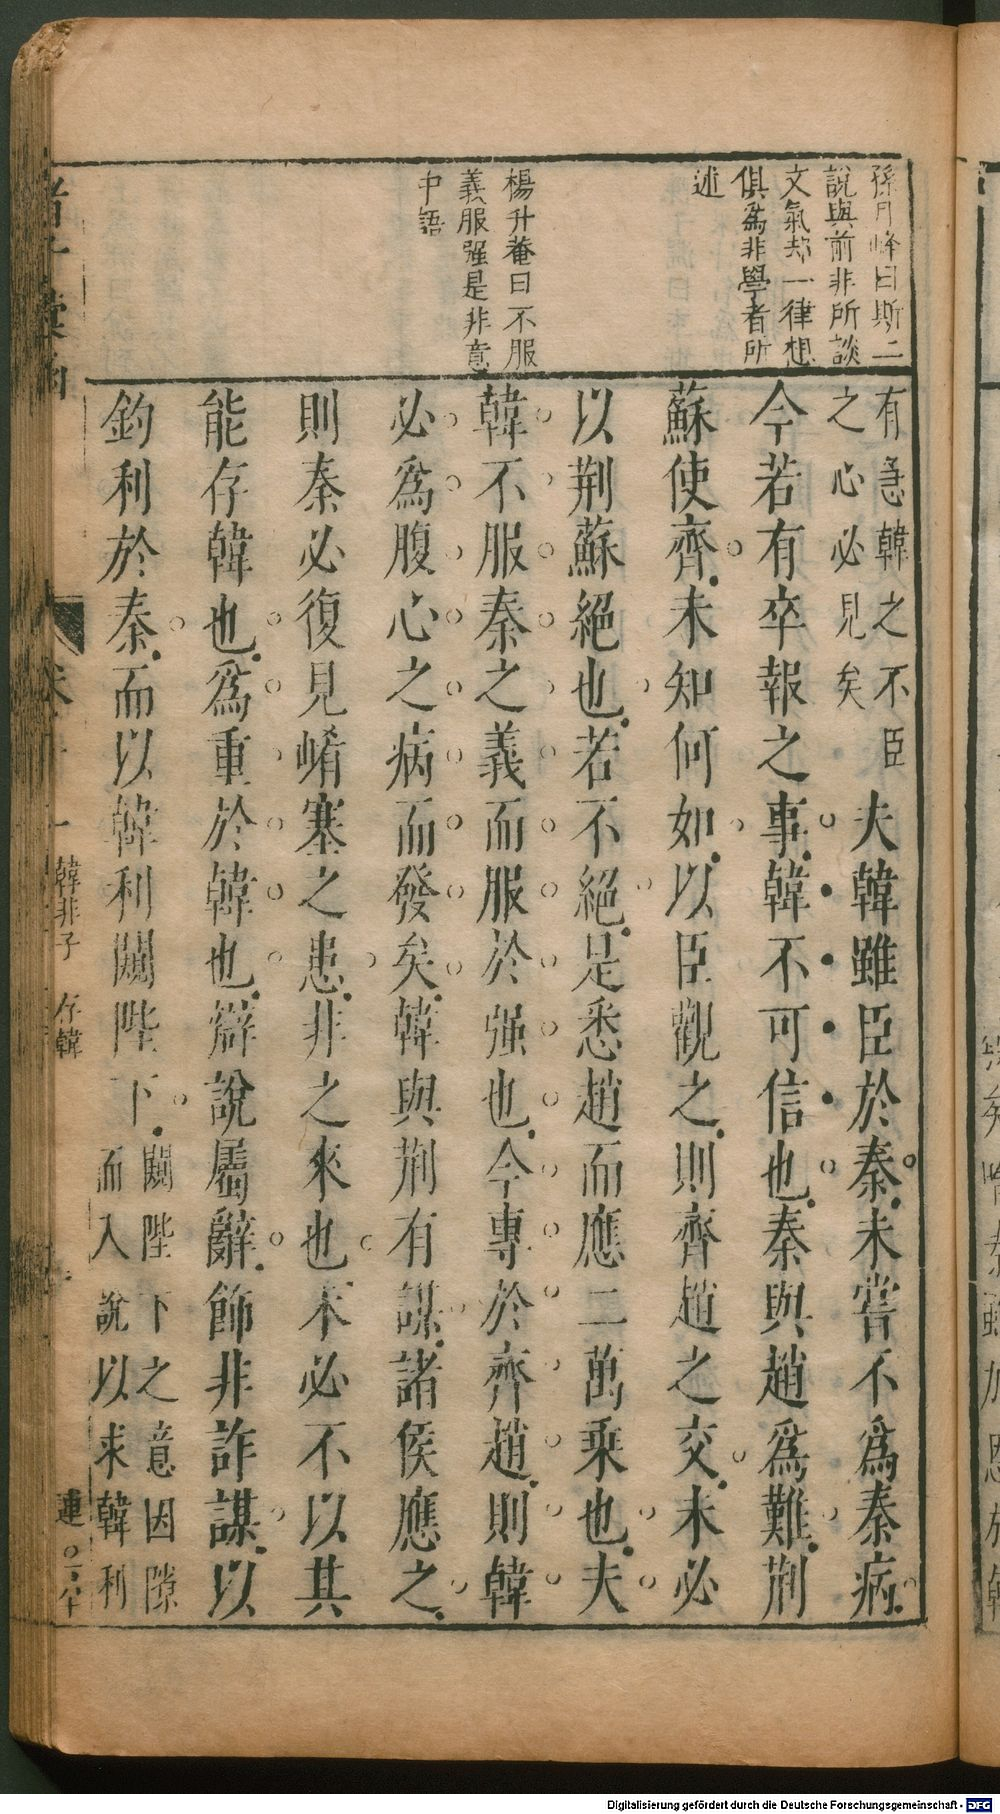 孫月峰曰斯二
說與前非所談
文氣却一律想
俱爲非學者所
述
楊升菴曰不服
義服强是非意
中語
有急韓之不臣
之心必見矣
夫韓雖臣於秦未嘗不爲秦病
今若有卒報之事韓不可信也秦與趙爲難荆
蘇使齊未知何如以臣觀之則齊趙之交未必
以荆蘇絕也若不絕足悉趙而應二萬乘也夫
韓不服秦之義而服於强也今專於齊趙則韓
必爲腹心之病而發矣韓與荆有謀諸侯應之
則秦必復見崤塞之患非之來也未必不以其
能存韓也爲重於韓也辯說屬辭飾非詐謀以
釣利於秦而以韓利闚陛下
闚陛下之意因隙
而入說以求韓利
韓非子 存韓
Digitalisierung gefördert durch die Deutsche Forschungsgemeinschaft - DFG